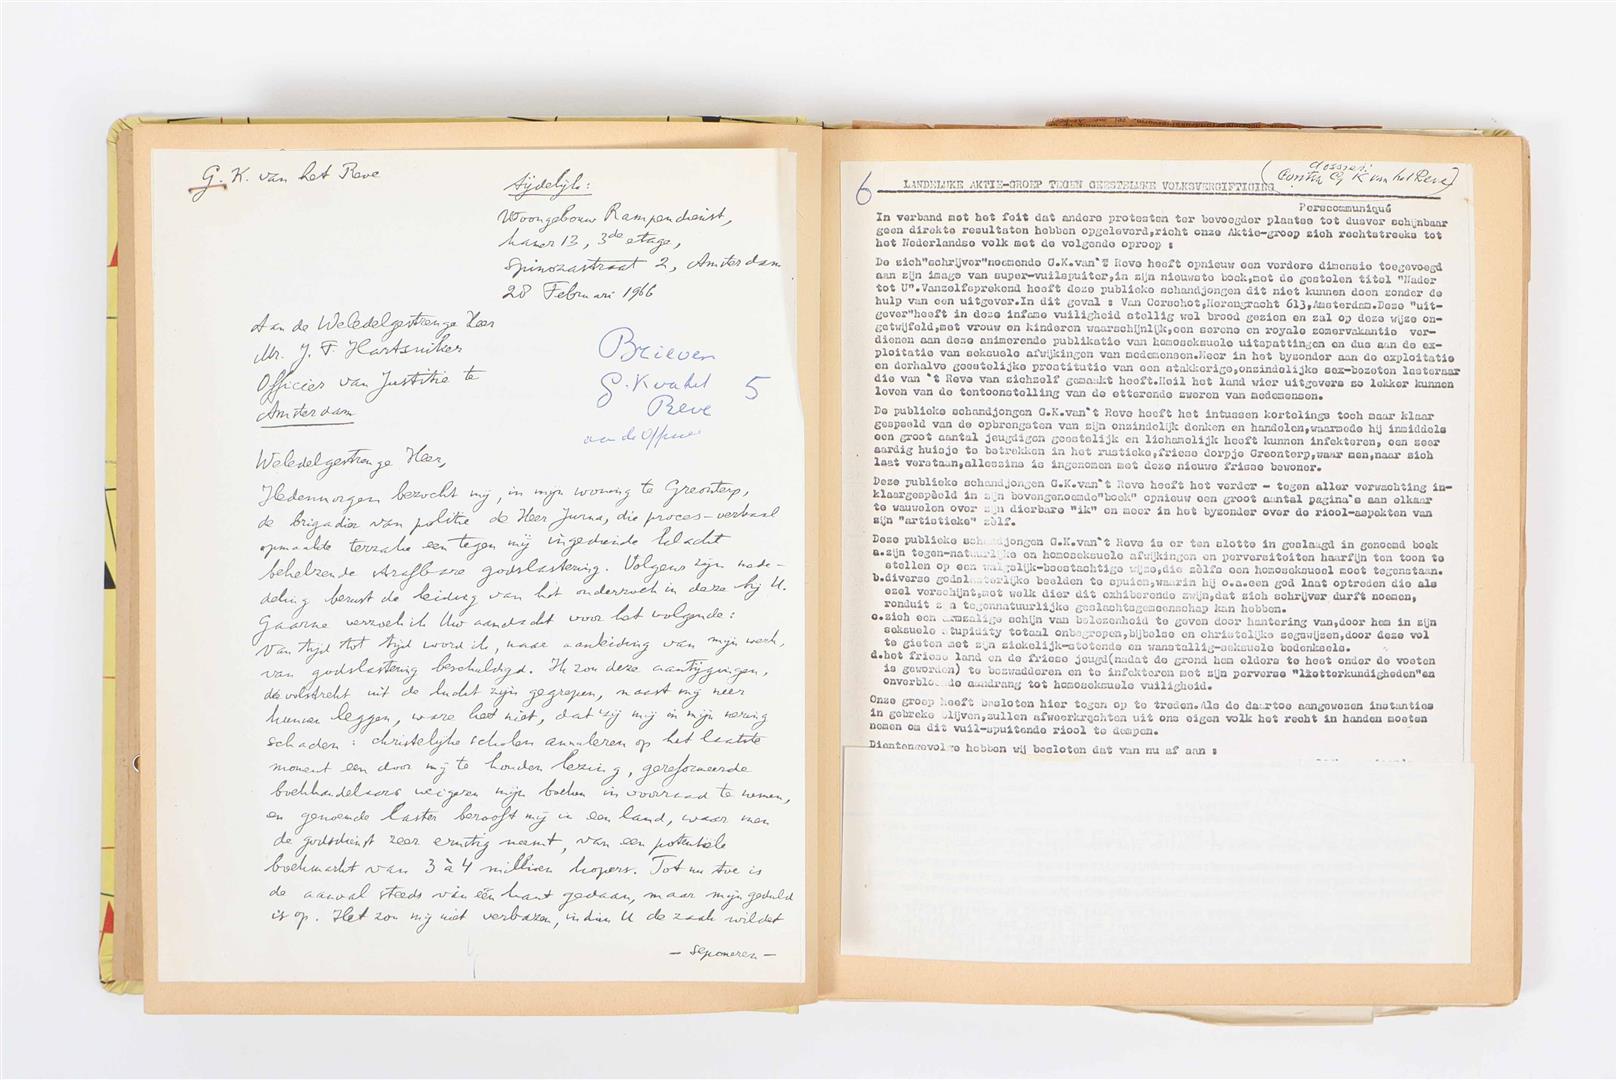 G. K. van het Reve
tijdelijk:
Woongebouw Rampendienst,
kamer 13, 3de etage,
Spinozastraat 2, Amsterdam
28 Februari 1966
Aan de Weledelgestrenge Heer
Mr. J. F. Hartsuiker
Officier van Justitie te
Amsterdam
Brieven
G. K v a het 5
Reve
aan de Officier
Weledelgestrenge Heer,
Hedenmorgen bezocht mij, in mijn woning te Greonterp,
de brigadier van politie de Heer Jurna, die proces-verbaal
opmaakte terzake een tegen mij ingediende klacht
behelzende strafbare godslastering. Volgens zijn mede-
deling berust de leiding van het onderzoek in deze bij U.
Gaarne verzoek ik Uw aandacht voor het volgende:
Van tijd tot tijd word ik, naar aanleiding van mijn werk,
van godslastering beschuldigd. Ik zou deze aantijgingen,
die volstrekt uit de lucht zijn gegrepen, naast mij neer
kunnen leggen, ware het niet, dat zij mij in mijn nering
schaden: christelijke scholen annuleren op het laatste
moment een door mij te houden lezing, gereformeerde
boekhandelaars weigeren mijn boeken in voorraad te nemen,
en genoemde laster berooft mij in een land, waar men
de godsdienst zeer ernstig neemt, van een potentiële
boekmarkt van 3 à 4 millioen kopers. Tot nu toe is
de aanval steeds van één kant gedaan, maar mijn geduld
is op. Het zou mij niet verbazen, indien U de zaak wildet
— seponeren —
6
(dossier:
Contra G K van het Reve)
LANDELIJKE AKTIE-GROEP TEGEN GEESTELIJKE VOLKSVERGIFTIGING
Perscommuniqué
In verband met het feit dat andere protesten ter bevoegder plaatse tot dusver schijnbaar
geen direkte resultaten hebben opgeleverd,richt onze Aktie-groep zich rechtstreeks tot
het Nederlandse volk met de volgende oproep :
De zich"schrijver"noemende G.K.van't Reve heeft opnieuw een verdere dimensie toegevoegd
aan zijn image van super-vuilspuiter,in zijn nieuwste boek,met de gestolen titel "Nader
tot U".Vanzelfsprekend heeft deze publieke schandjongen dit niet kunnen doen zonder de
hulp van een uitgever.In dit geval : Van Oorschot,Herengracht 613,Amsterdam.Deze "uit-
gever"heeft in deze infame vuiligheid stellig wel brood gezien en zal op deze wijze on-
getwijfeld,met vrouw en kinderen waarschijnlijk,een serene en royale zomervakantie ver-
dienen aan deze animerende publikatie van homoseksuele uitspattingen en dus aan de ex-
ploitatie van seksuele afwijkingen van medemensen.Meer in het byzonder aan de exploitatie
en derhalve geestelijke prostitutie van een stakkerige,onzindelijke sex-bezeten lasteraar
die van 't Reve van zichzelf gemaakt heeft.Heil het land wier uitgevers zo lekker kunnen
leven van de tentoonstelling van de etterende zweren van medemensen.
De publieke schandjongen G.K.van't Reve heeft het intussen kortelings toch maar klaar
gespeeld van de opbrengsten van zijn onzindelijk denken en handelen,waarmede hij inmiddels
een groot aantal jeugdigen geestelijk en lichamelijk heeft kunnen infekteren, een zeer
aardig huisje te betrekken in het rustieke,friese dorpje Greonterp,waar men,naar zich
laat verstaan,alleszins is ingenomen met deze nieuwe friese bewoner.
Deze publieke schandjongen G.K.van't Reve heeft het verder - tegen aller verwachting in-
klaargespéeld in zijn bovengenoemde"boek" opnieuw een groot aantal pagina's aan elkaar
te wauwelen over zijn dierbare "ik" en meer in het byzonder over de riool-aspekten van
zijn "artistieke" zèlf.
Deze publieke schandjongen G.K.van't Reve is er ten slotte in geslaagd in genoemd boek
a.zijn tegen-natuurlijke en homoseksuele afwijkingen en perversiteiten haarfijn ten toon te
stellen op een walgelijk-beestachtige wijze,die zèlfs een homoseksueel moet tegenstaan.
b.diverse godslasterlijke beelden te spuien,waarin hij o.a.een god laat optreden die als
ezel verschijnt,met welk dier dit exhiberende zwijn,dat zich schrijver durft noemen,
ronduit zijn tegennatuurlijke geslachtsgemeenschap kan hebben.
c.zich een armzalige schijn van belezenheid te geven door hantering van,door hem in zijn
seksuele stupidity totaal onbegrepen,bijbelse en christelijke zegswijzen,door deze vol
te gieten met zijn ziekelijk-stotende en wanstallig-seksuele bedenksels.
d.het friese land en de friese jeugd(nadat de grond hem elders te heet onder de voeten
is geworden) te bezwadderen en te infekteren met zijn perverse "letterkundigheden"en
onverbloemde aandrang tot homoseksuele vuiligheid.
Onze groep heeft besloten hier tegen op te treden.Als de daartoe aangewezen instanties
in gebreke blijven,zullen afweerkrachten uit ons eigen volk het recht in handen moeten
nemen om dit vuil-spuitende riool te dempen.
Dientengevolge hebben wij besloten dat van nu af aan :